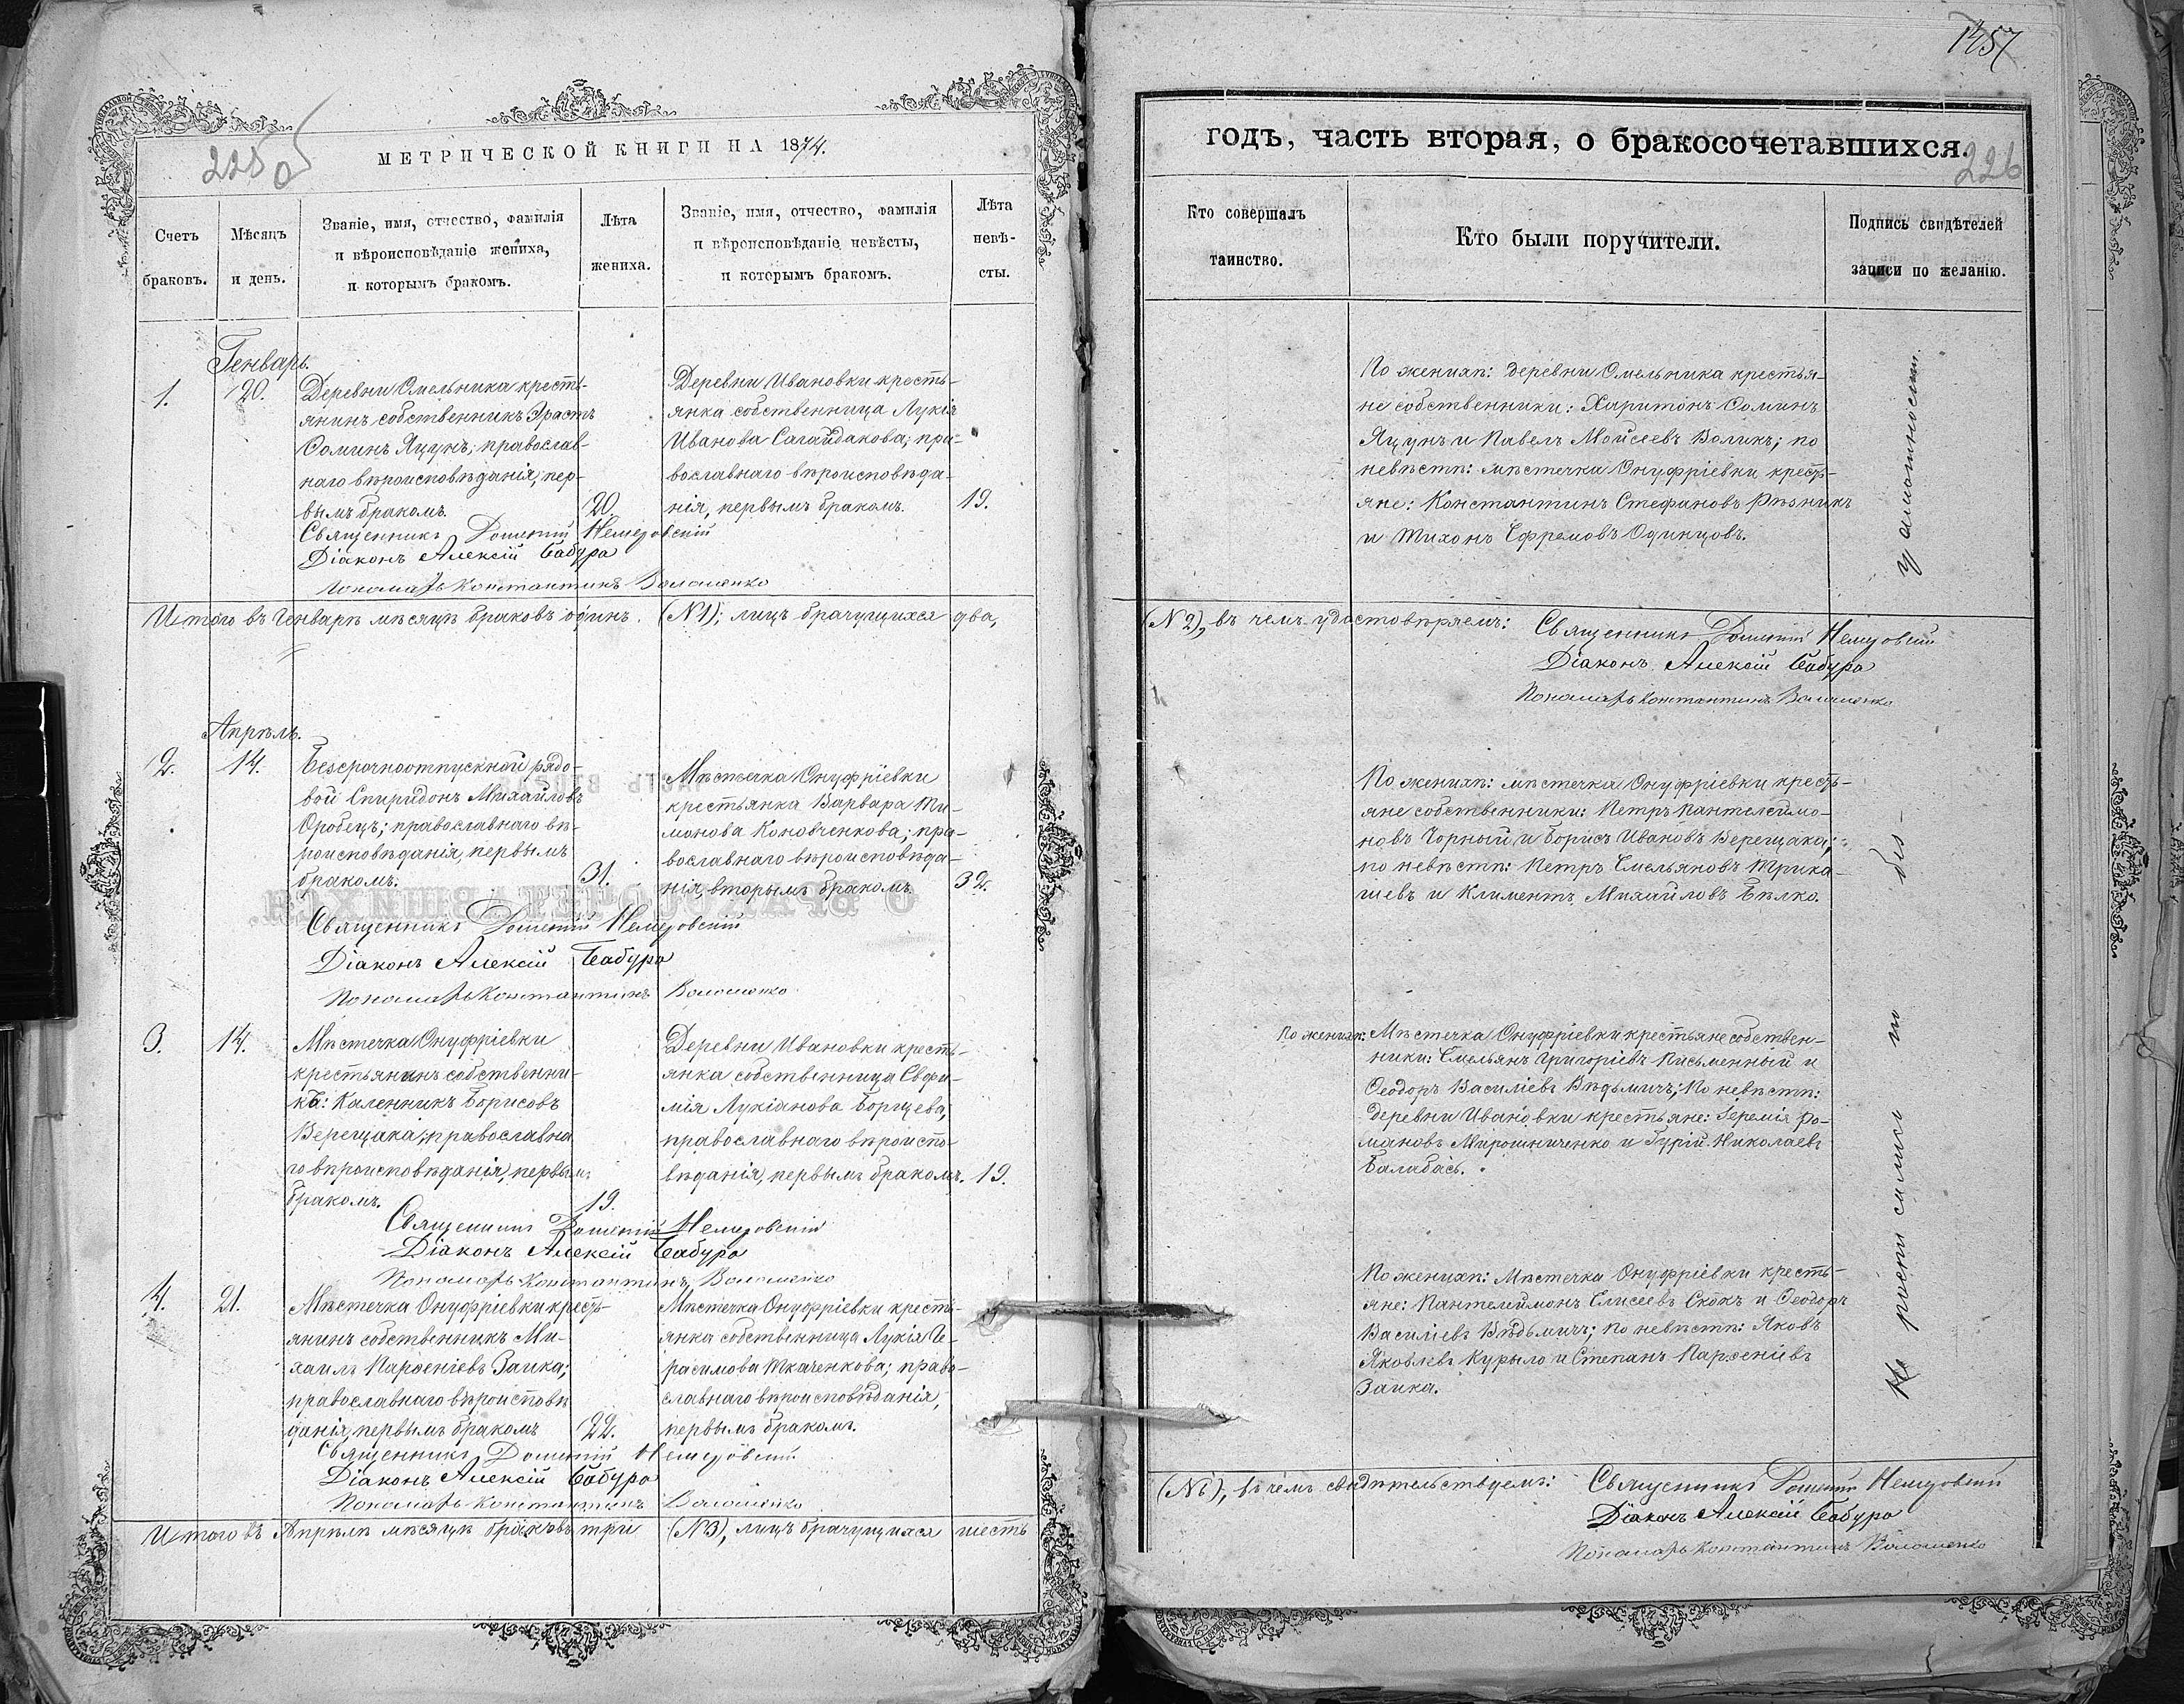 МЕТРИЧЕСКОЙ КНИГИ НА 1874.
Счетъ браковъ.
Мѣсяцъ и день.
Званіе, имя, отчество, фамилія
и вѣроисповѣданіе жениха,
и которымъ бракомъ.
Лѣта жениха.
Званіе, имя, отчество, фамилія
и вѣроисповѣданіе невѣсты,
и которымъ бракомъ.
Лѣта невѣ-
сты.
Генварь.
1.
20.
Деревни Омельника кресть-
янинъ собственникъ Эрастъ
Ѳоминъ Яцунъ; православ-
наго вѣроисповѣданія, пер-
вымъ бракомъ.
20.
Деревни Ивановки кресть-
янка собственница Лукія
Иванова Сагайдакова; пра-
вославнаго вѣроисповѣда-
нія, первымъ бракомъ.
19.
Священникъ
Діаконъ Алексій Бабура
Пономарь Константинъ Волошенко
Итого въ Генварѣ мѣсяцѣ браковъ одинъ. (№1); лицъ брачущихся два,
Апрѣль.
2.
14.
Безсрочноотпускной рядо-
вой Спиридонъ Михайловъ
Оробецъ; православнаго вѣ-
роисповѣданія, первымъ
бракомъ.
31.
Мѣстечка Онуфріевки
крестьянка Варвара Ти-
монова Коновченкова; пра-
вославнаго вѣроисповѣда-
нія, вторымъ бракомъ.
32.
Священникъ
Діаконъ Алексій Бабура
Пономарь Константинъ Волошенко
3.
14.
Мѣстечка Онуфріевки
крестьянинъ собственни-
къ: Каленникъ Борисовъ
Верещака; православна
го вѣроисповѣданія, первымъ
бракомъ.
19.
Деревни Ивановки кресть-
янка собственница Евфи-
мія Лукіанова Борщева,
православнаго вѣроиспо-
вѣданія, первымъ бракомъ.
19.
Священникъ
Діаконъ Алексій Бабура
Пономарь Константинъ Волошенко
4.
21.
Мѣстечка Онуфріевки кресть-
янинъ собственникъ Ми-
хаилъ Парѳеніевъ Заика;
православнаго вѣроисповѣ
данія, первымъ бракомъ
22.
Мѣстечка Онуфріевки кресть-
янка собственница Лукія Ге-
расимова Ткаченкова; право-
славнаго вѣроисповѣданія,
первымъ бракомъ.
Священникъ
Діаконъ Алексій Бабура
Пономарь Константинъ Волошенко
Итого въ Апрѣлѣ мѣсяцѣ браковъ три (№3), лицъ брачущихся шесть
226
годъ, часть вторая, о бракосочетавшихся.
Кто совершалъ
таинство.
Кто были поручители.
Подпись свидѣтелей
записи по желанію.
По женихѣ: деревни Омельника крестья-
не собственники: Харитонъ Ѳоминъ
Яцунъ и Павелъ Мойсеевъ Воликъ; по
невѣстѣ: мѣстечка Онуфріевки кресть-
яне: Константинъ Стефановъ Рѣзникъ
и Тихонъ Ефремовъ Одинцовъ.
(№ 2), въ чемъ удостовѣряемъ: Священникъ
Діаконъ Алексій Бабура
Пономарь Константинъ Волошенко
По женихѣ: мѣстечка Онуфріевки кресть-
яне собственники: Петръ Пантелеймо-
новъ Чорный и Борисъ Ивановъ Верещака;
по невѣстѣ: Петръ Емельяновъ Трика-
шевъ и Климентъ Михайловъ Бѣлко.
По женихѣ: Мѣстечка Онуфріевки крестьяне собствен-
ники: Емельянъ Григоріевъ Письменный и
Ѳеодоръ Василіевъ Вѣдьмичъ; по невѣстѣ:
деревни Ивановки крестьяне: Іеремія Ро-
мановъ Мирошниченко и Гурій Николаевъ
Балабась.
По женихѣ: Мѣстечка Онуфріевки кресть-
яне: Пантелиймонъ Елисеевъ Скокъ и Ѳеодоръ
Василіевъ Вѣдьмичъ; по невѣстѣ: Яковъ
Яковлевъ Курыло и Степанъ Парѳеніевъ
Заика.
(№6), въ чемъ свидѣтельствуемъ: Священникъ
Діаконъ Алексій Бабура
Пономарь Константинъ Волошенко